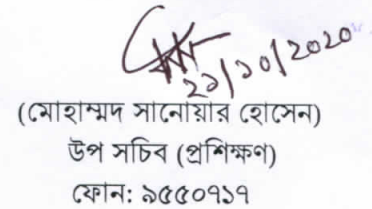 ২১/১০/২০২০
(মোহাম্মদ সানোয়ার হোসেন)
উপ সচিব (প্রশিক্ষণ)
ফোন: ৯৫৫০৭১৭